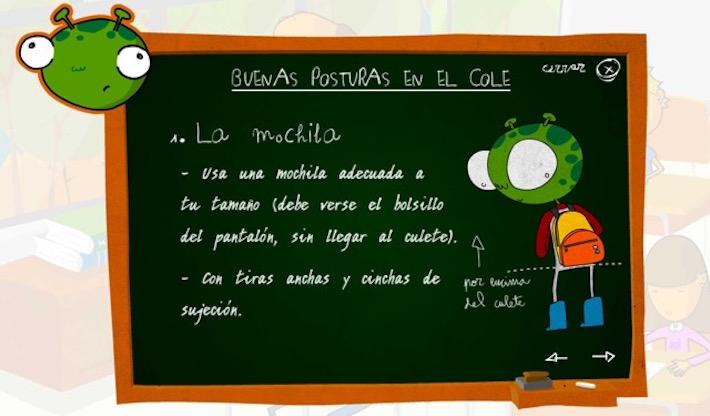 BUENAS POSTURAS EN EL COLE
cerrar
1. La mochila
- Usa una mochila adecuada a
tu tamaño (debe verse el bolsillo
del pantalón, sin llegar al culete).
- Con tiras anchas y cinchas de
sujeción.
por encima
del culete